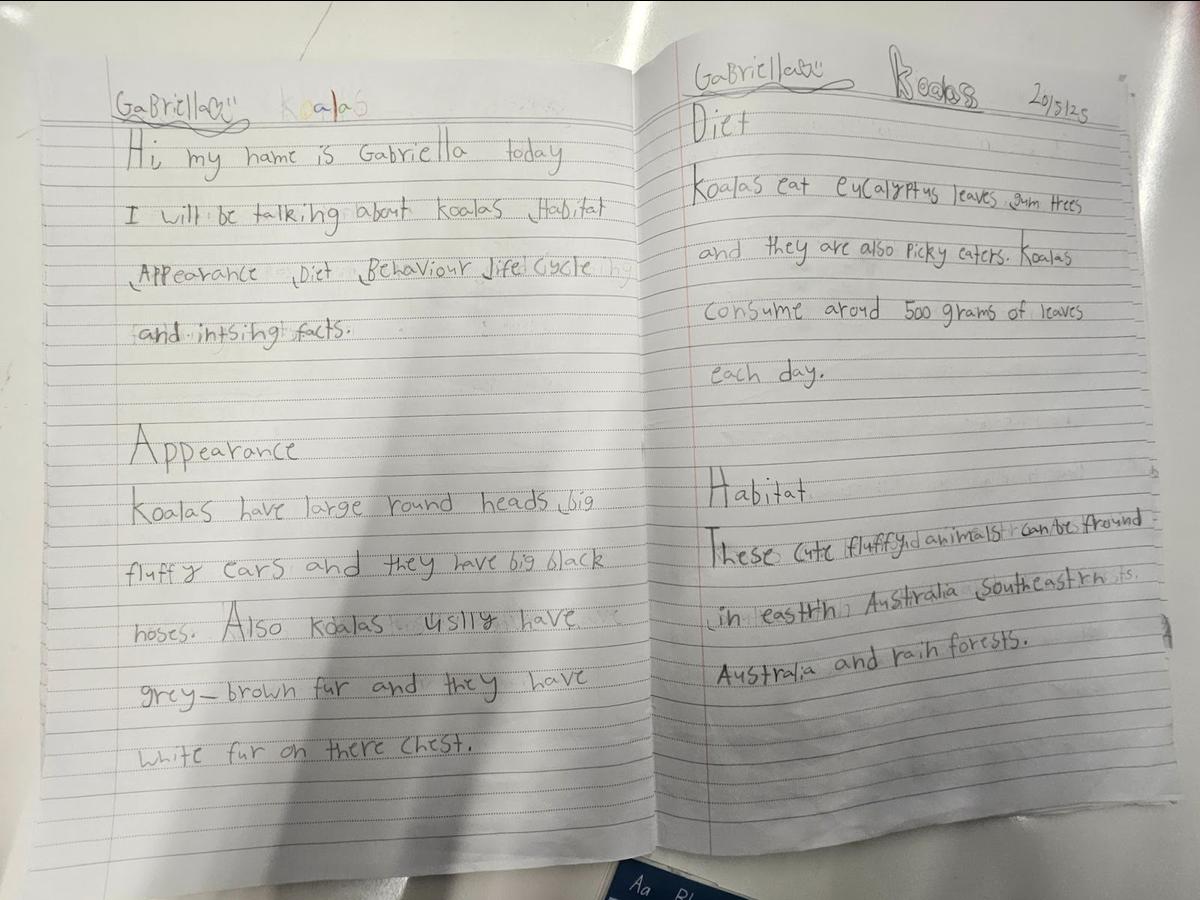 GaBriella
Koalas
Hi, my name is Gabriella today
I will be talking about koalas ,Habitat
,Appearance ,Diet ,Behaviour ,life cycle
and intsing facts.
Appearance
Koalas have large round heads ,big
fluffy ears and they have big black
noses. Also koalas uslly have
grey-brown fur and they have
white fur on there chest.
GaBriella
Koalas
20/5/25
Diet
Koalas eat eucalyptus leaves ,gum trees
and they are also picky eaters. Koalas
consume aroud 500 grams of leaves
each day.
Habitat
These cute fluffy animals can be fround
,in eastrn, Australia ,southeastrn
Australia and rain forests.
Aa